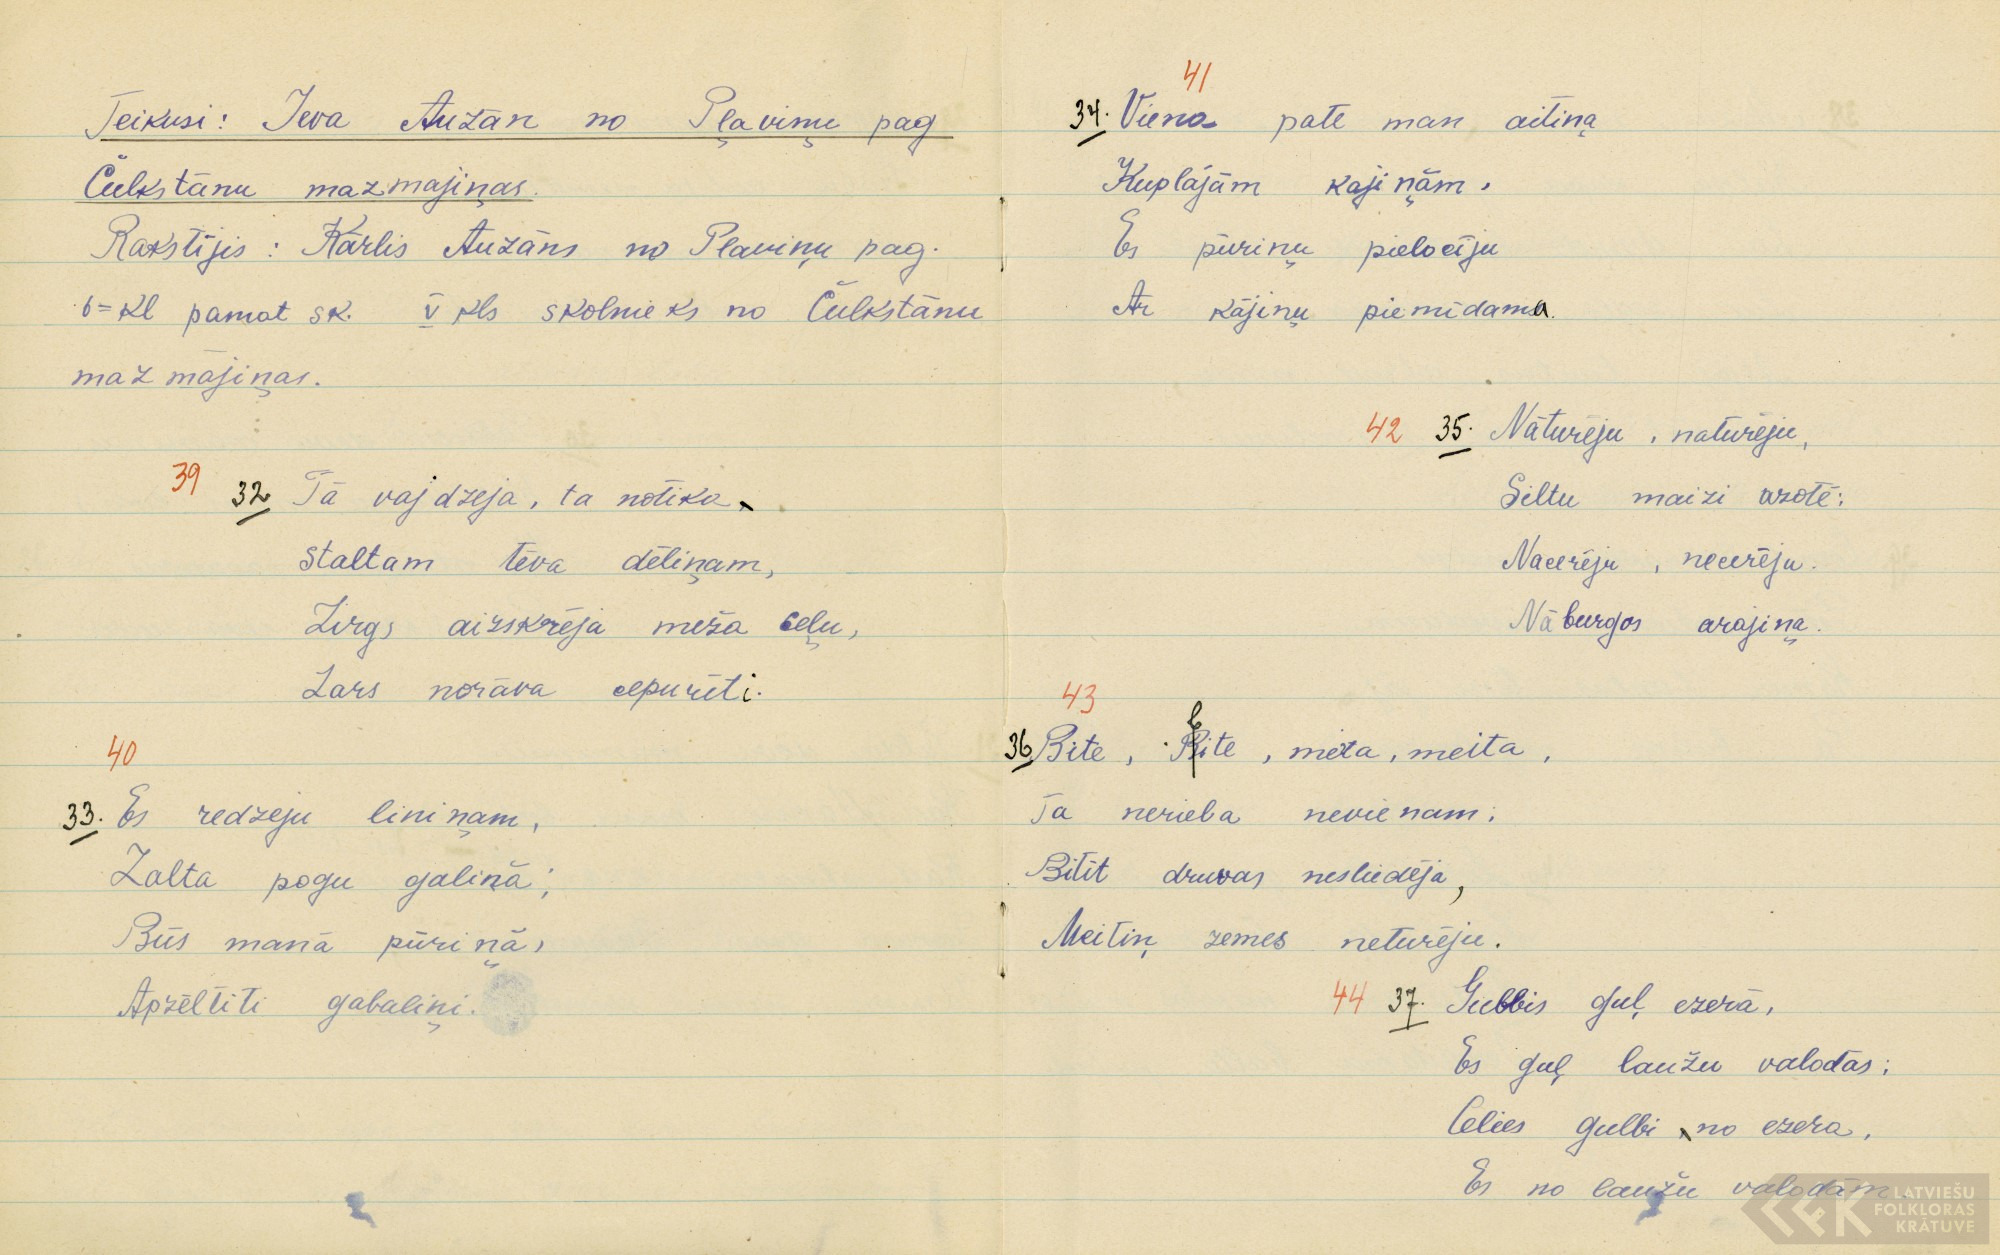 Teikusi: Ieva Aužān no Pļaviņu pag
Čulkstānu mazmajiņas.
Rakstījis: Kārlis Aužāns no Pļaviņu pag.
6=kl pamat sk. V kls skolnieks no Čulkstānu
maz mājiņas.
39 32 Tā vajdzēja, ta notika
staltam tēva dēliņam,
Zirgs aizskrēja meža ceļu,
Zars norāva cepurīti.
40
33. Es redzeju liniņam,
Zalta pogu galiņā;
Būs manā pūriņā,
Apzēltīti gabaliņi.
41
34. Viena pate man aitiņa
Kuplājām kājiņām,
Es pūriņu pielocīju
Ar kājiņu piemīdama.
42 35. Nāturēju, naturēju,
Siltu maizi azotē:
Nacerēju, necerēju.
Nāburgos arājiņa.
43
36. Bite, Bite, meita, meita,
Ta nerieba nevienam;
Bitīt druvas nesliedēja,
Meitiņ zemes neturēju.
44 37. Gulbis guļ ezerā,
Es guļ laužu valodas;
Celies gulbi no ezera,
Es no laužu valodām.
LATVIEŠU
FOLKLORAS
KRĀTUVE